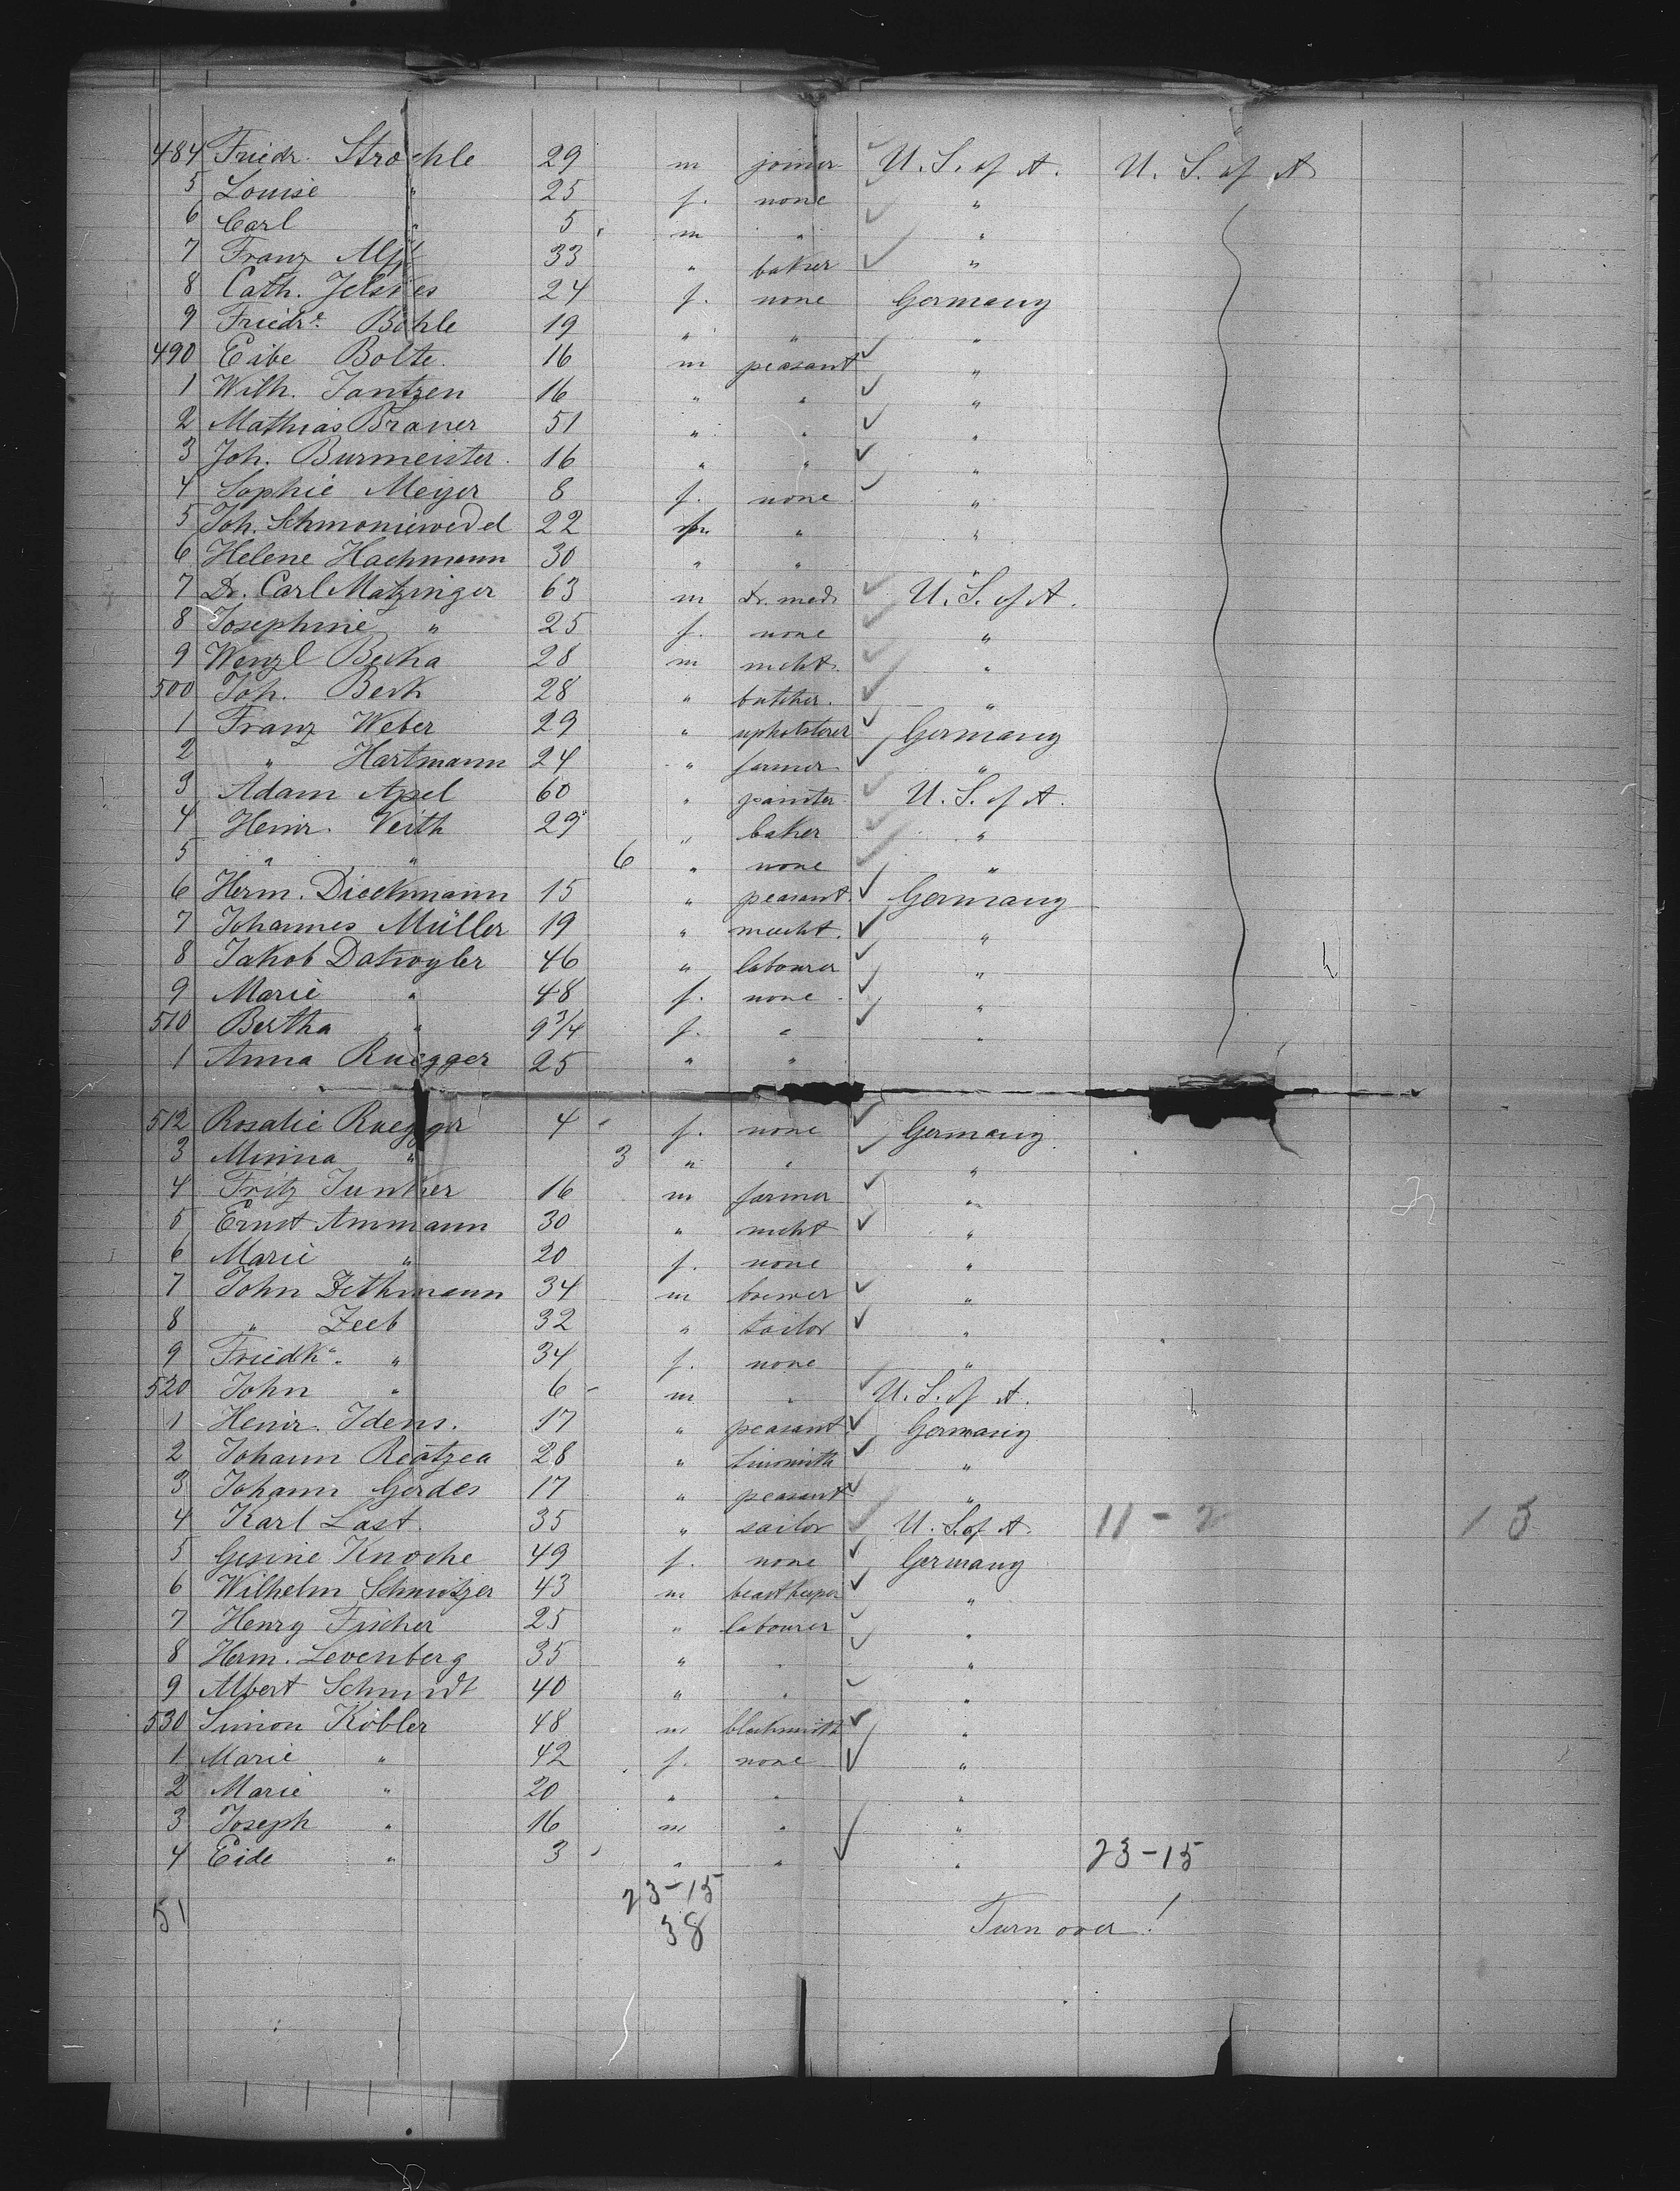 484 Friedr. Stroehle 29 m joiner U. S. of A. U. S. of A
5 Louise " 25 f. none "
6 Carl " 5 m " "
7 Franz 33 " baker "
8 Cath. 24 f. none Germany
9 Friedr.e Bohle 19 " " "
490 Eibe Bolte 16 m peasant "
1 Wilh. Jantzen 16 " " "
2 Mathias Braner 51 " " "
3 Joh. Burmeister 16 " " "
4 Sophie Meyer 8 f. none "
5 Joh. Schmoniewedel 22 " "
6 Helene Hachmann 30 " " "
7 Dr. Carl Matzinger 63 m Dr. med. U. S. of A.
8 Josephine " 25 f. none "
9 Wenzl Becka 28 m mcht. "
500 Joh. Beck 28 " butcher. "
1 Franz Weber 29 " upholsterer Germany
2 " Hartmann 24 " farmer "
3 Adam Apel 60 " painter U. S. of A.
4 Heinr. Veith 29 " baker "
5 " " 6 " none "
6 Herm. Dieckmann 15 " peasant. Germany
7 Johannes Müller 19 " mercht. "
8 Jakob Datwyler 46 " labourer "
9 Marie " 48 f. none "
510 Bertha " 9 3/4 f. " "
1 Anna Ruegger 25 " "
512 Rosalie Ruegger 4 f. none Germany
3 Minna " 3 " " "
4 Fritz Junker 16 m farmer "
5 Ernst Ammann 30 " mcht "
6 Marie " 20 f. none "
7 John Dethmann 34 m brewer "
8 " Zeeb 32 " tailor "
9 Friedke. " 34 f. none "
520 John " 6 m " U. S. of A.
1 Heinr. Idens. 17 " peasant Germany
2 Johann 28 " tinsmith "
3 Johann Gerdes 17 " peasant "
4 Karl Last 35 " sailor U. S. of A. 11 - 2 13
5 Gesine Knoche 49 f. none Germany
6 Wilhelm Schmitzer 43 m "
7 Henry Fischer 25 " labourer "
8 Herm. Levenberg 35 " " "
9 Albert Schmidt 40 " " "
530 Simon Kobler 48 m blacksmith "
1 Marie " 42 f. none "
2 Marie " 20 " " "
3 Joseph " 16 m " "
4 Eide " 3 " " " 23-15
23-15
51 38 Turn over!